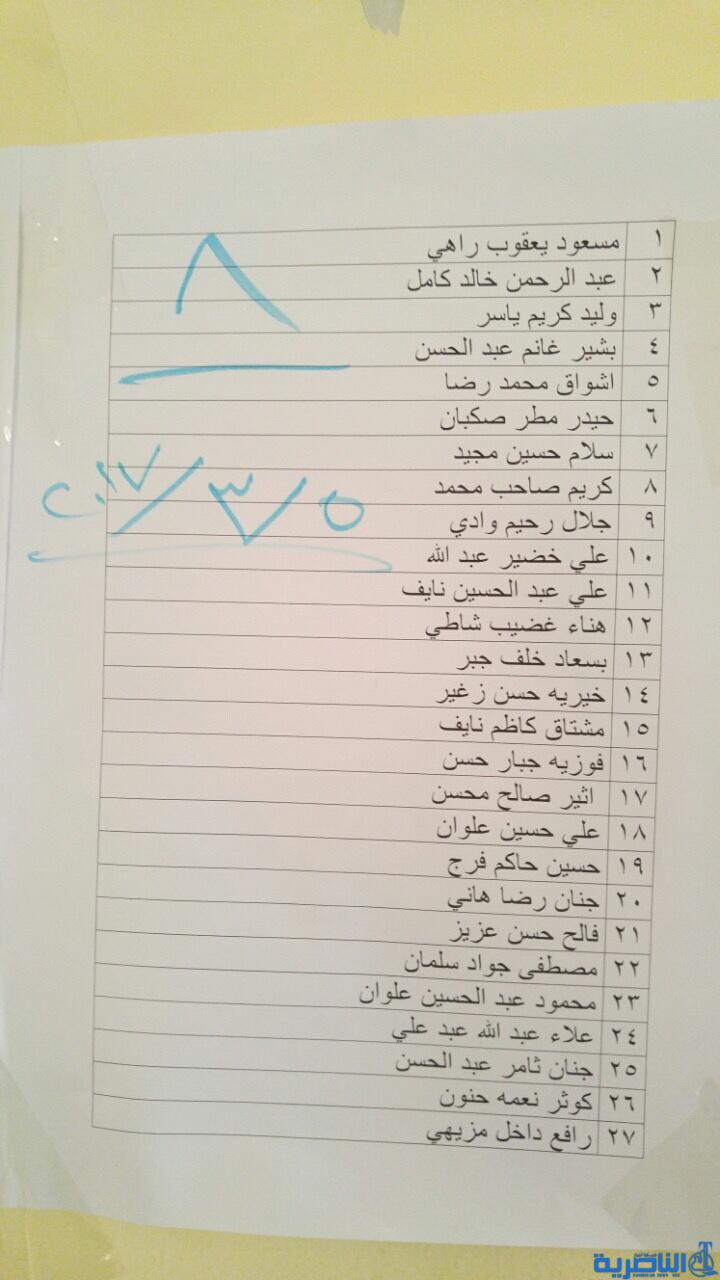 ١ مسعود يعقوب راهي
٢ عبد الرحمن خالد كامل
٣ وليد كريم ياسر
٤ بشير غانم عبد الحسن
٥ اشواق محمد رضا
٦ حيدر مطر صكبان
٧ سلام حسين مجيد
٨ كريم صاحب محمد
٩ جلال رحيم وادي
١٠ علي خضير عبد الله
١١ علي عبد الحسين نايف
١٢ هناء غضيب شاطي
١٣ بسعاد خلف جبر
١٤ خيريه حسن زغير
١٥ مشتاق كاظم نايف
١٦ فوزيه جبار حسن
١٧ اثير صالح محسن
١٨ علي حسين علوان
١٩ حسين حاكم فرج
٢٠ جنان رضا هاني
٢١ فالح حسن عزيز
٢٢ مصطفى جواد سلمان
٢٣ محمود عبد الحسين علوان
٢٤ علاء عبد الله عبد علي
٢٥ جنان ثامر عبد الحسن
٢٦ كوثر نعمه حنون
٢٧ رافع داخل مزيهي
٨
٥/٣/٢٠١٧
الناصرية